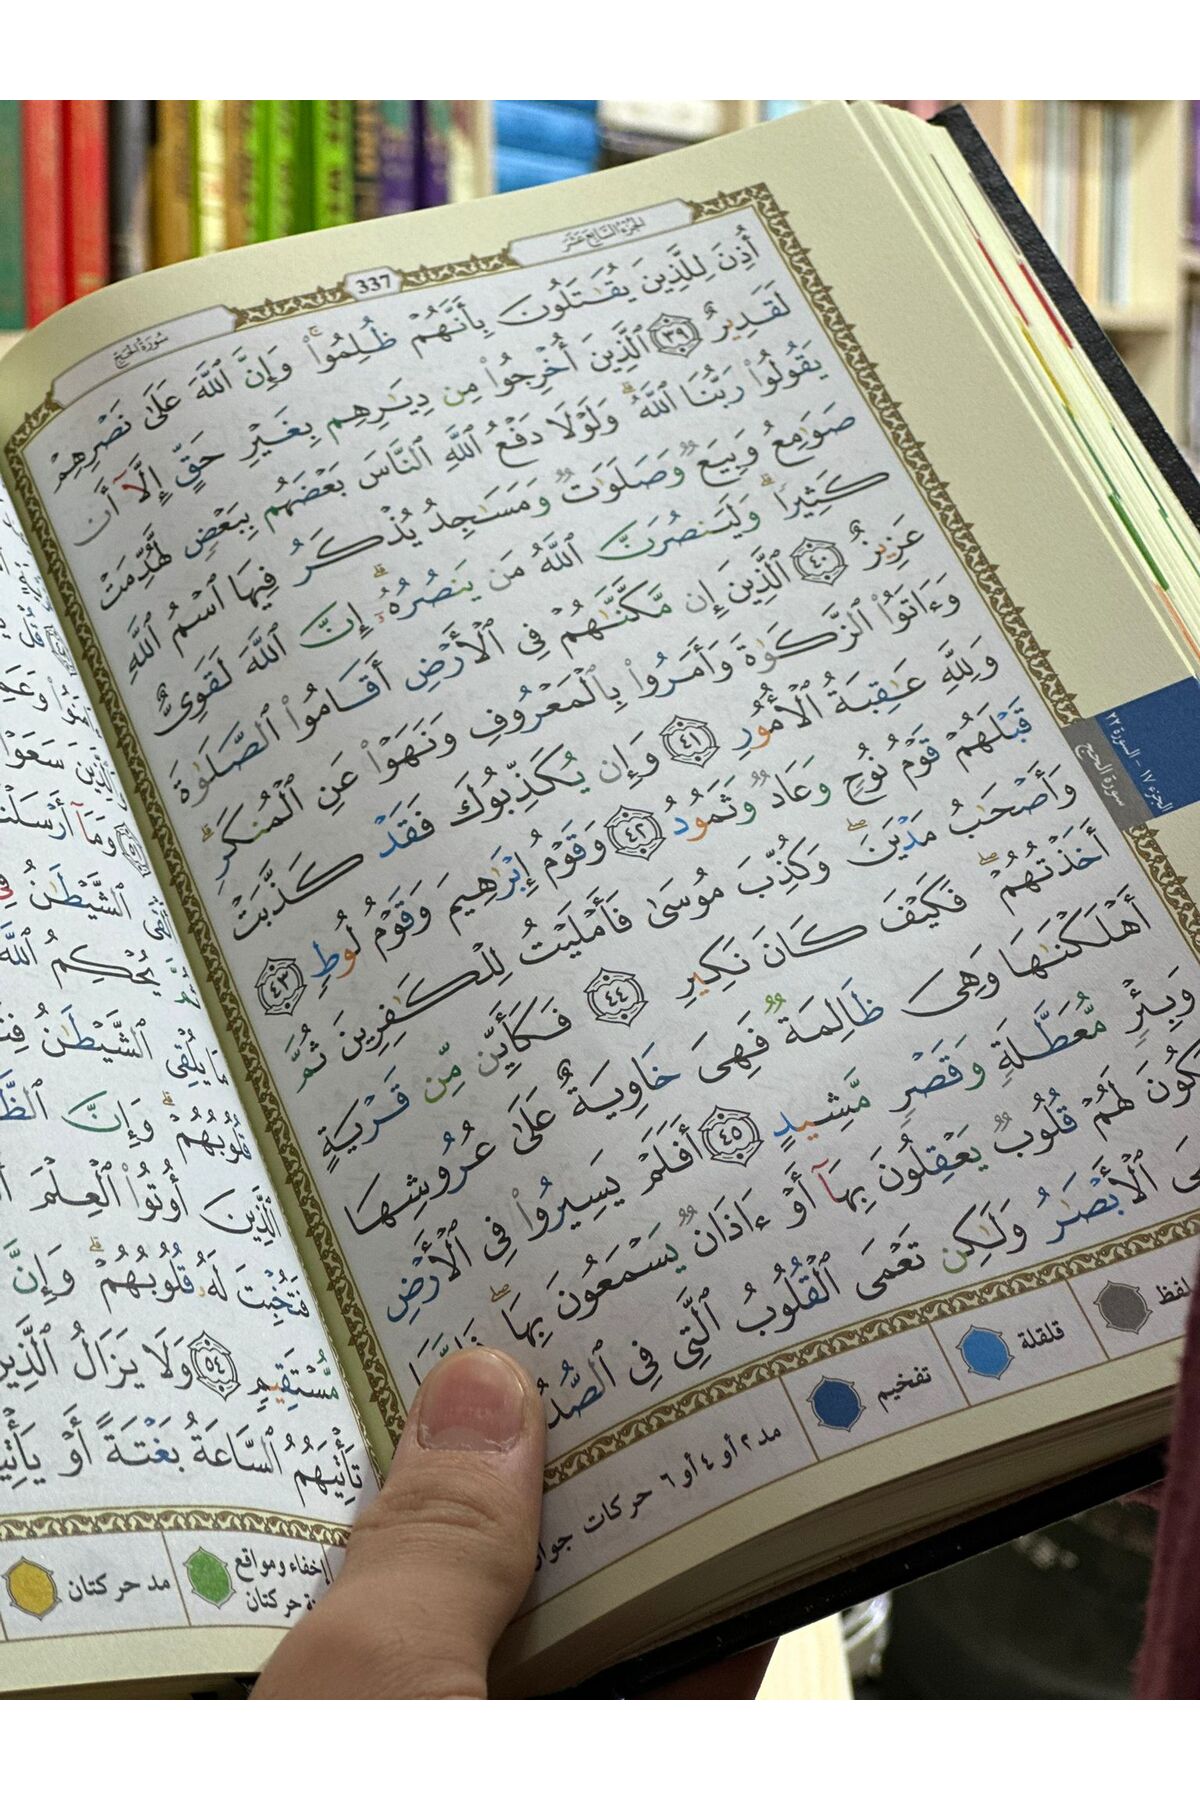 الجزء السابع عشر
337
سورة الحج
أُذِنَ لِلَّذِينَ يُقَٰتَلُونَ بِأَنَّهُمْ ظُلِمُوا۟ ۚ وَإِنَّ ٱللَّهَ عَلَىٰ نَصْرِهِمْ
لَقَدِيرٌ ٣٩ ٱلَّذِينَ أُخْرِجُوا۟ مِن دِيَٰرِهِم بِغَيْرِ حَقٍّ إِلَّآ أَن
يَقُولُوا۟ رَبُّنَا ٱللَّهُ ۗ وَلَوْلَا دَفْعُ ٱللَّهِ ٱلنَّاسَ بَعْضَهُم بِبَعْضٍ لَّهُدِّمَتْ
صَوَٰمِعُ وَبِيَعٌ وَصَلَوَٰتٌ وَمَسَٰجِدُ يُذْكَرُ فِيهَا ٱسْمُ ٱللَّهِ
كَثِيرًا ۗ وَلَيَنصُرَنَّ ٱللَّهُ مَن يَنصُرُهُۥٓ ۗ إِنَّ ٱللَّهَ لَقَوِىٌّ
عَزِيزٌ ٤٠ ٱلَّذِينَ إِن مَّكَّنَّٰهُمْ فِى ٱلْأَرْضِ أَقَامُوا۟ ٱلصَّلَوٰةَ
وَءَاتَوُا۟ ٱلزَّكَوٰةَ وَأَمَرُوا۟ بِٱلْمَعْرُوفِ وَنَهَوْا۟ عَنِ ٱلْمُنكَرِ ۗ
وَلِلَّهِ عَٰقِبَةُ ٱلْأُمُورِ ٤١ وَإِن يُكَذِّبُوكَ فَقَدْ كَذَّبَتْ
قَبْلَهُمْ قَوْمُ نُوحٍ وَعَادٌ وَثَمُودُ ٤٢ وَقَوْمُ إِبْرَٰهِيمَ وَقَوْمُ لُوطٍ ٤٣
وَأَصْحَٰبُ مَدْيَنَ ۖ وَكُذِّبَ مُوسَىٰ فَأَمْلَيْتُ لِلْكَٰفِرِينَ ثُمَّ
أَخَذْتُهُمْ ۖ فَكَيْفَ كَانَ نَكِيرِ ٤٤ فَكَأَيِّن مِّن قَرْيَةٍ
أَهْلَكْنَٰهَا وَهِىَ ظَالِمَةٌ فَهِىَ خَاوِيَةٌ عَلَىٰ عُرُوشِهَا
وَبِئْرٍ مُّعَطَّلَةٍ وَقَصْرٍ مَّشِيدٍ ٤٥ أَفَلَمْ يَسِيرُوا۟ فِى ٱلْأَرْضِ
لَهُمْ قُلُوبٌ يَعْقِلُونَ بِهَآ أَوْ ءَاذَانٌ يَسْمَعُونَ بِهَا ۖ
ٱلْأَبْصَٰرُ وَلَٰكِن تَعْمَى ٱلْقُلُوبُ ٱلَّتِى فِى
قلقلة
تفخيم
مد ٢ أو ٤ أو ٦ حركات
الجزء ١٧ - السورة ٢٢
سورة الحج
ٱلشَّيْطَٰنُ
يُحْكِمُ ٱللَّهُ
مَا يُلْقِى ٱلشَّيْطَٰنُ
قُلُوبُهُمْ ۗ وَإِنَّ
ٱلَّذِينَ أُوتُوا۟ ٱلْعِلْمَ
فَتُخْبِتَ لَهُۥ قُلُوبُهُمْ ۗ وَإِنَّ
مُّسْتَقِيمٍ ٥٤ وَلَا يَزَالُ ٱلَّذِينَ
تَأْتِيَهُمُ ٱلسَّاعَةُ بَغْتَةً أَوْ
إخفاء ومواقع
حركتان
مد حركتان